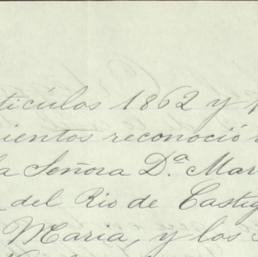 tículos 1862 y
ientos reconoció
la Señora D.ª Mar
del Rio de Castig
Maria, y los